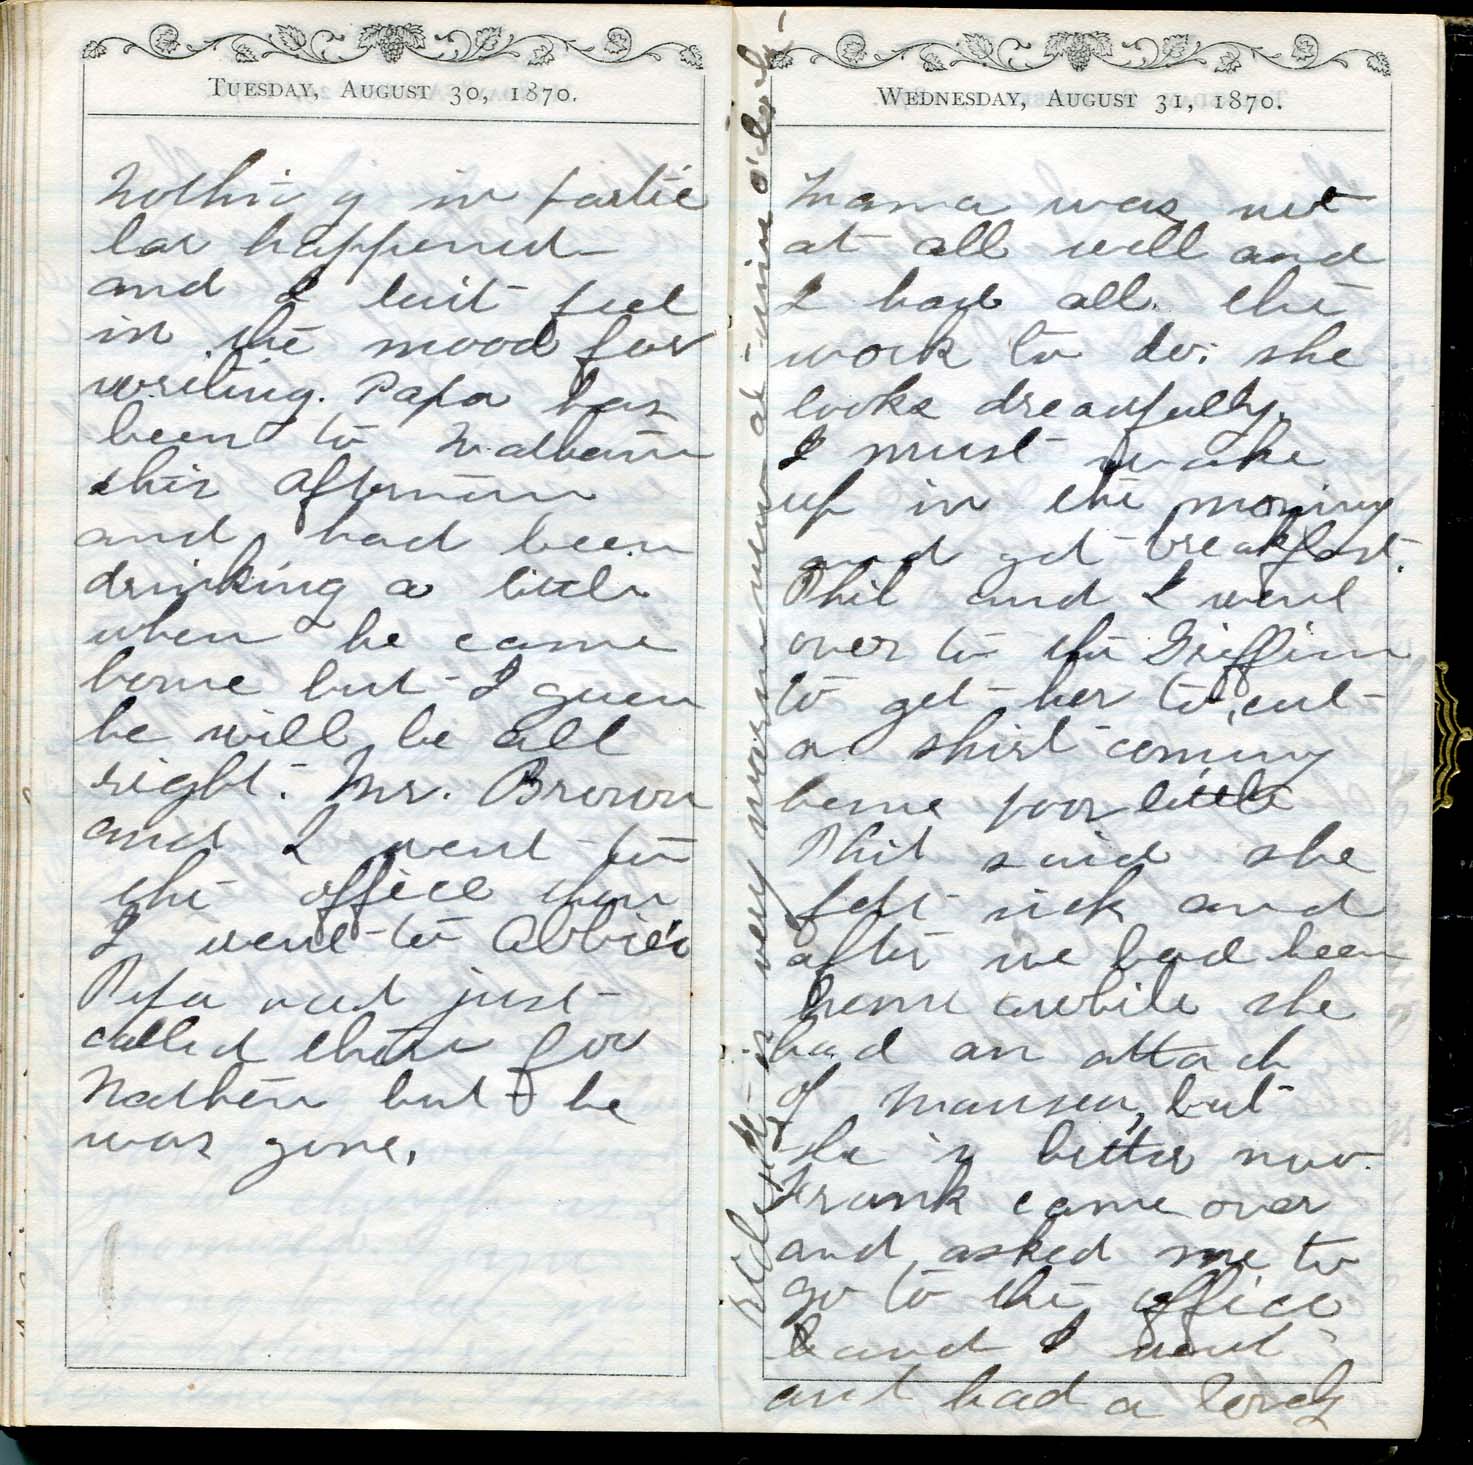 TUESDAY, AUGUST 30, 1870.
Nothing in partic
lar happened
and I dont feel
in the mood for
writing. Papa has
been to Waltham
this afternoon
and had been
drinking a little
when he came
home but I guess
he will be all
right. Mr. Brown
and I went to
the office then
I went to Abbie's
Papa had just
called there for
Nathen but he
was gone.
WEDNESDAY, AUGUST 31, 1870.
Mama was not
at all well and
I had all the
work to do. she
looks dreadfully.
I must wake
up in the morning
and get breakfast.
Phil and I went
over to the Griffins
to get her to cut
a shirt coming
home poor little
Phil said she
felt sick and
after we had been
home awhile she
had an attack
of nausea, but
she is better now.
Frank came over
and asked me to
go to the office
and I went
and had a lovely
ride. It is very warm now at nine o'clock